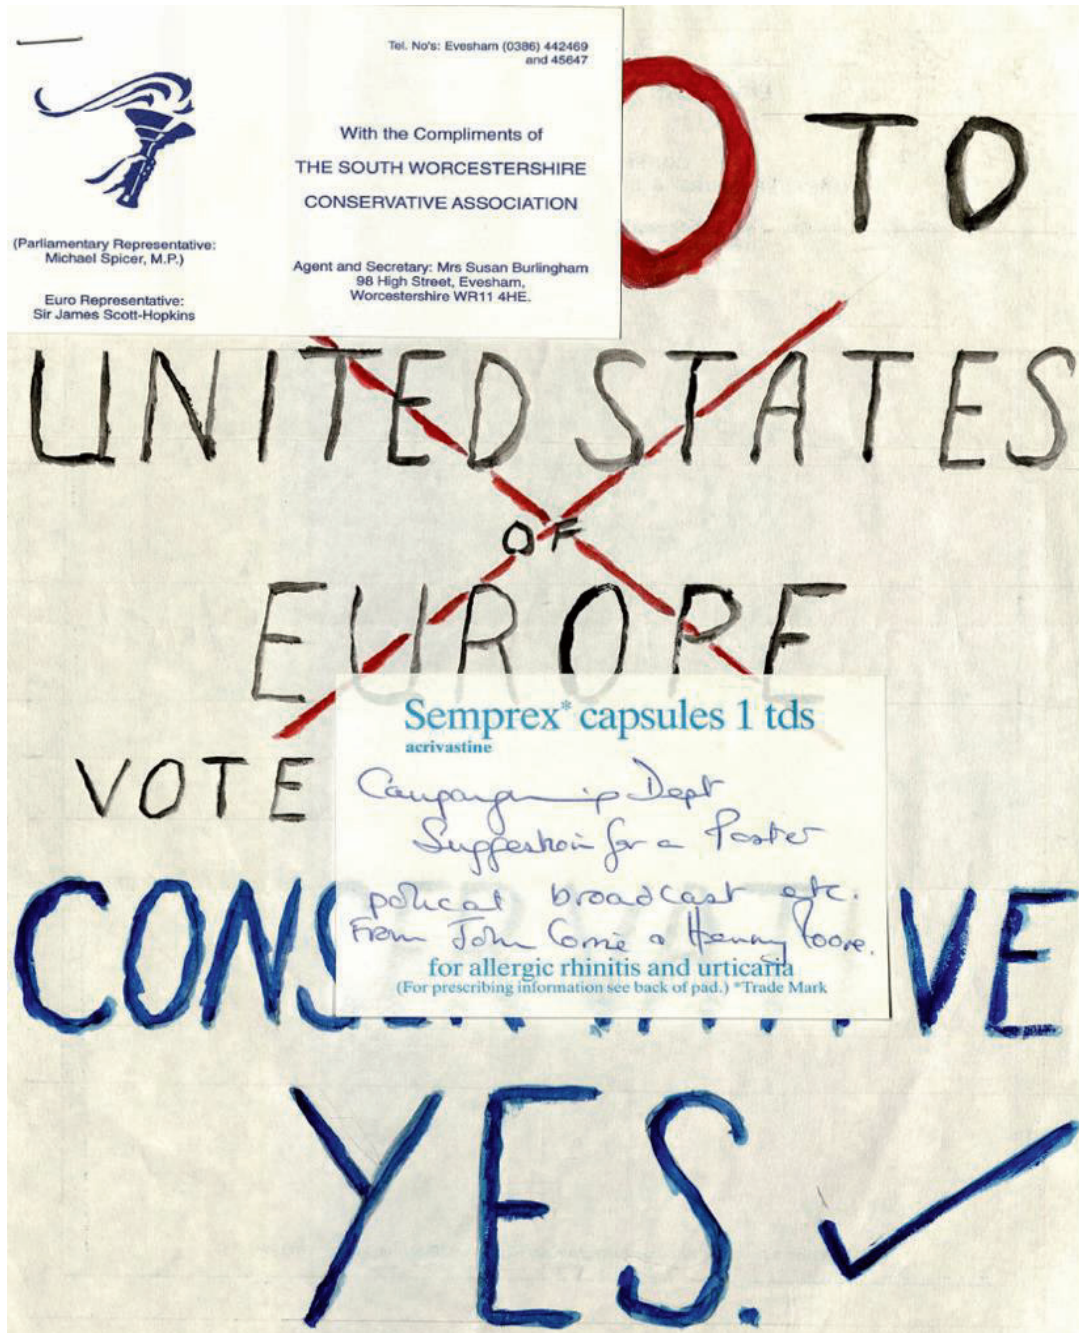 Tel. No's: Evesham (0386) 442469
and 45647
With the Compliments of
THE SOUTH WORCESTERSHIRE
CONSERVATIVE ASSOCIATION
(Parliamentary Representative:
Michael Spicer, M.P.)
Euro Representative:
Sir James Scott-Hopkins
Agent and Secretary: Mrs Susan Burlingham
98 High Street, Evesham,
Worcestershire WR11 4HE.
O TO
UNITED STATES
OF
EUROPE
VOTE
Semprex* capsules 1 tds
acrivastine
Dept
Suggestion for a Poster
political broadcast etc.
From John
for allergic rhinitis and urticaria
(For prescribing information see back of pad.) *Trade Mark
CONSERVATIVE
YES.